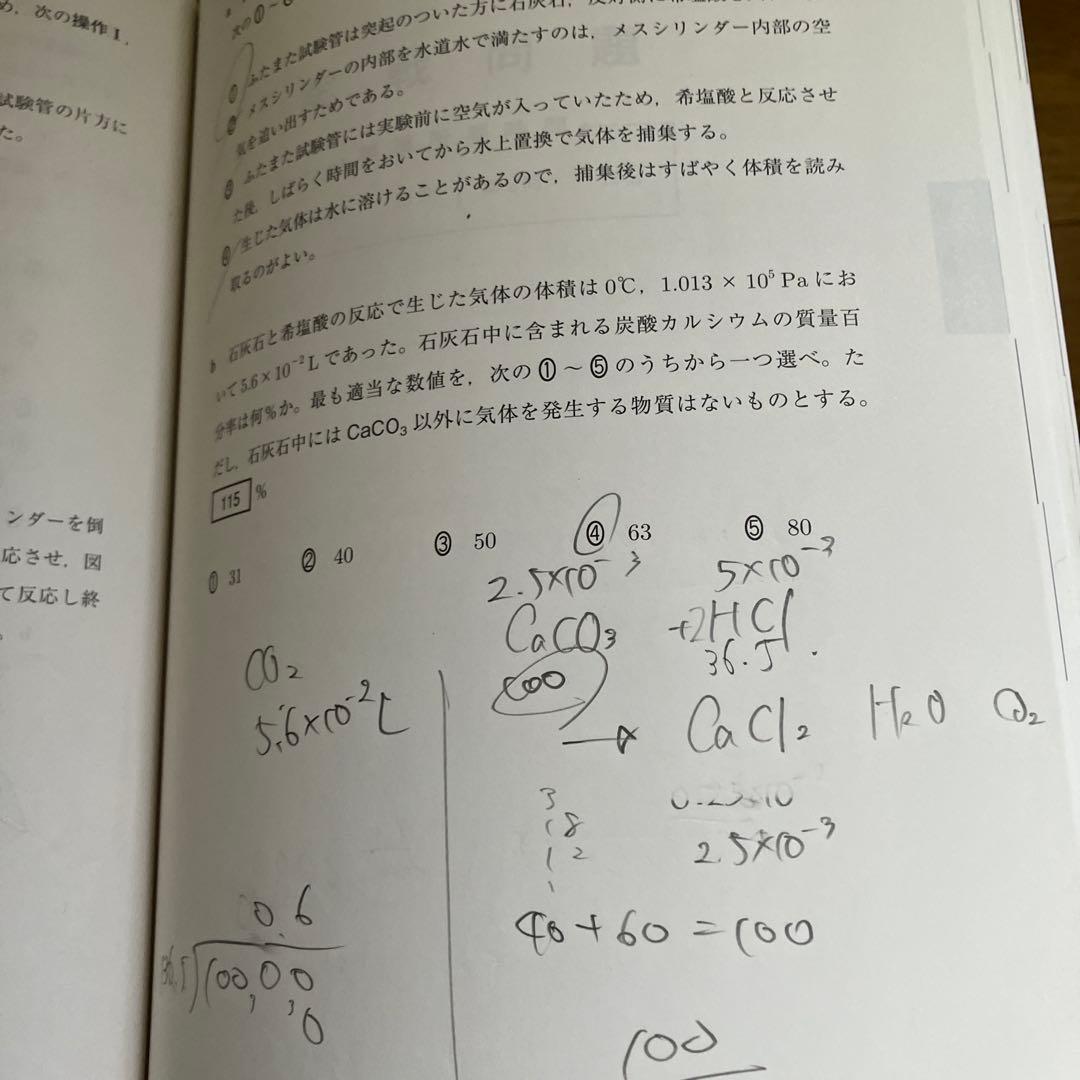 め,次の操作Ⅰ.
試験管の片方に
た。
ンダーを倒
応させ,図
て反応し終
。
次の①~
① ふたまた試験管は突起のついた方に石灰石,
② メスシリンダーの内部を水道水で満たすのは,メスシリンダー内部の空
気を追い出すためである。
③ ふたまた試験管には実験前に空気が入っていたため,希塩酸と反応させ
た後,しばらく時間をおいてから水上置換で気体を捕集する。
④ 生じた気体は水に溶けることがあるので,捕集後はすばやく体積を読み
取るのがよい。
b 石灰石と希塩酸の反応で生じた気体の体積は0℃,1.013 × 10⁵ Pa にお
いて5.6×10⁻² L であった。石灰石中に含まれる炭酸カルシウムの質量百
分率は何%か。最も適当な数値を,次の①~⑤のうちから一つ選べ。た
だし,石灰石中には CaCO₃ 以外に気体を発生する物質はないものとする。
115 %
① 31 ② 40 ③ 50 ④ 63 ⑤ 80
2.5×10⁻³ 5×10⁻³
CaCO₃ +2HCl
100 36.5
→ CaCl₂ H₂O CO₂
CO₂
5.6×10⁻²L
2.5×10⁻³
40+60=100
0.6
36.5)100,00
0
100